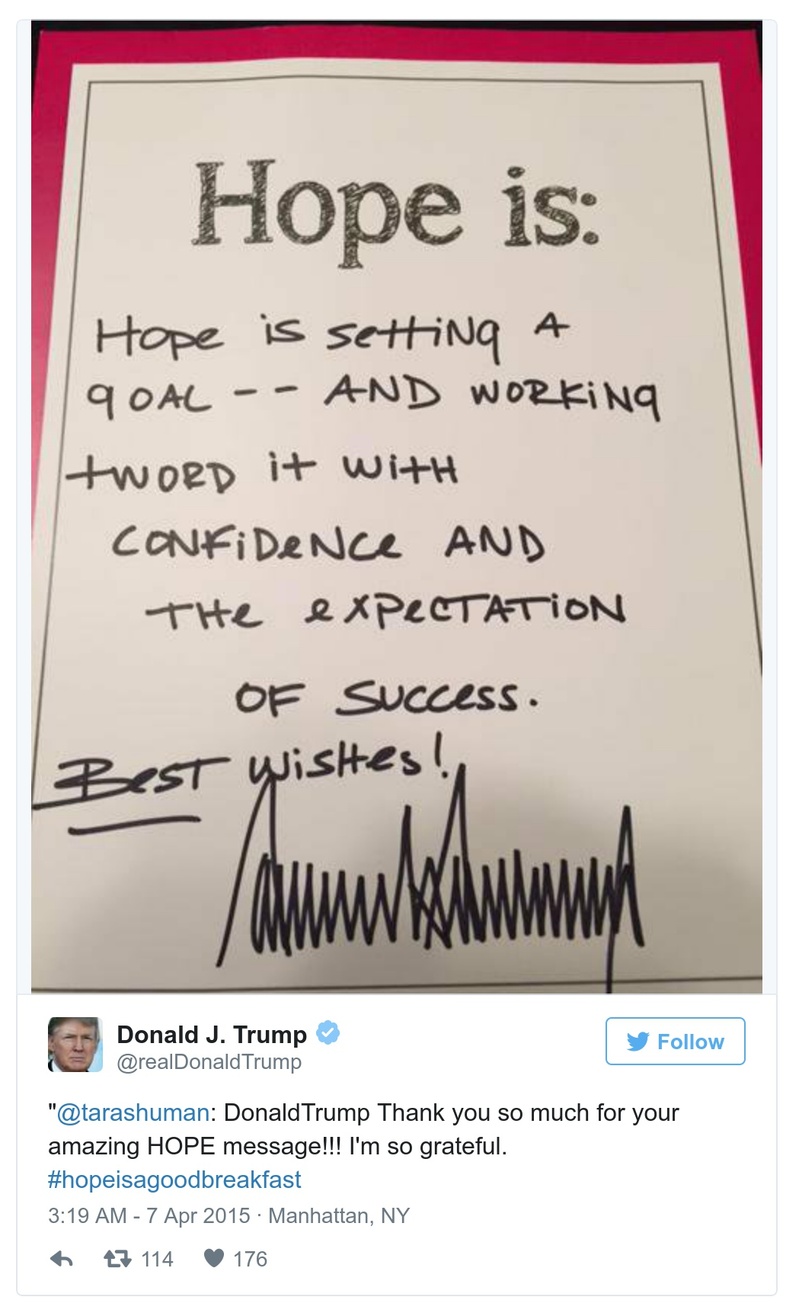 Hope is:
Hope is setting A
gOAL -- AND WORKiNg
tWORD it WitH
CONFiDeNCe AND
THe eXPeCTATiON
OF SUCCeSS.
BeST WiSHes!
Donald J. Trump
@realDonaldTrump
Follow
"@tarashuman: DonaldTrump Thank you so much for your
amazing HOPE message!!! I'm so grateful.
#hopeisagoodbreakfast
3:19 AM - 7 Apr 2015 · Manhattan, NY
114 176